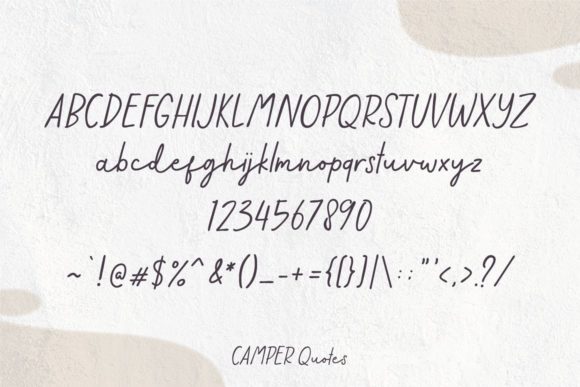 ABCDEFGHIJKLMNOPQRSTUVWXYZ
abcdefghijklmnopqrstuvwxyz
1234567890
~`!@#$%^&*()_-+={[}]|\:;"'<,>.?/
CAMPER Quotes